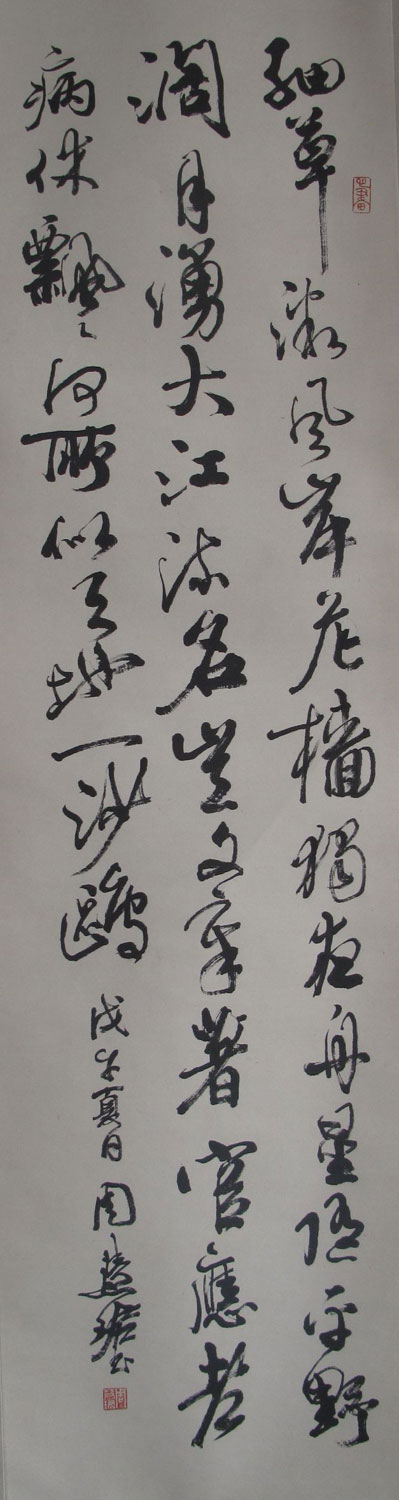 細草微風岸危檣獨夜舟星随平野
濶月湧大江流名豈文章著官應老
病休飄々何所似天地一沙鷗
戊午夏日周慧珺书